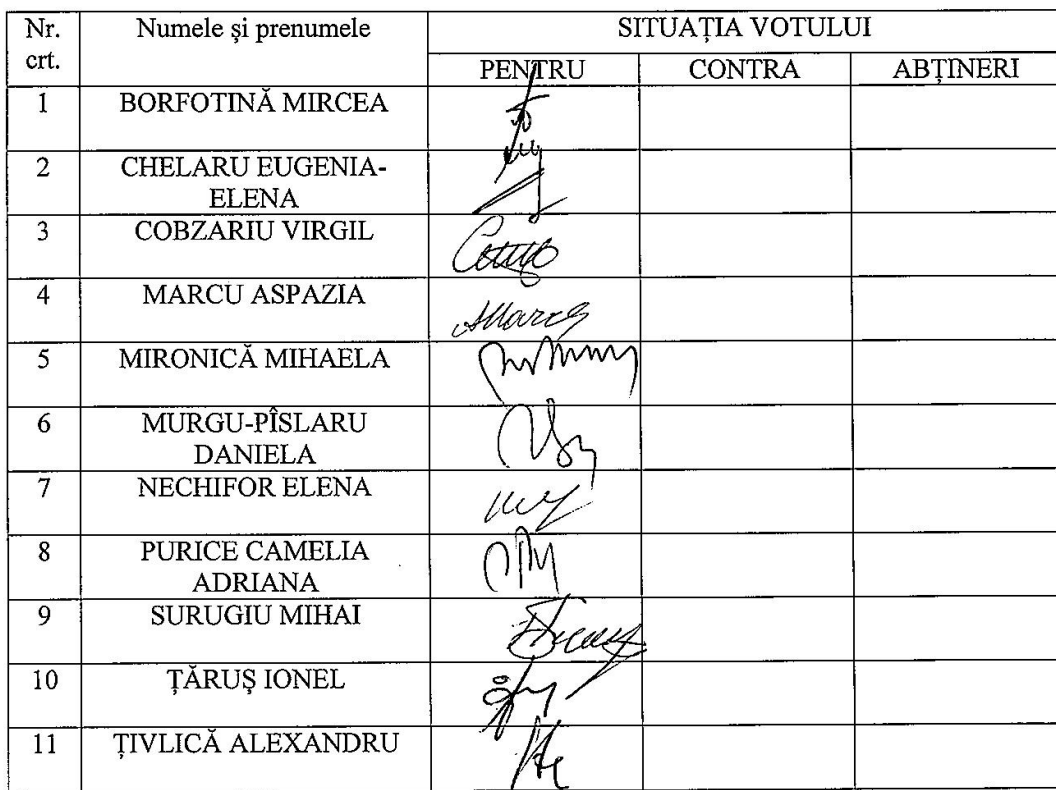 Nr. crt.
Numele și prenumele
SITUAȚIA VOTULUI
PENTRU CONTRA ABȚINERI
1 BORFOTINĂ MIRCEA
2 CHELARU EUGENIA-
ELENA
3 COBZARIU VIRGIL
4 MARCU ASPAZIA
5 MIRONICĂ MIHAELA
6 MURGU-PÎSLARU
DANIELA
7 NECHIFOR ELENA
8 PURICE CAMELIA
ADRIANA
9 SURUGIU MIHAI
10 ȚĂRUȘ IONEL
11 ȚIVLICĂ ALEXANDRU